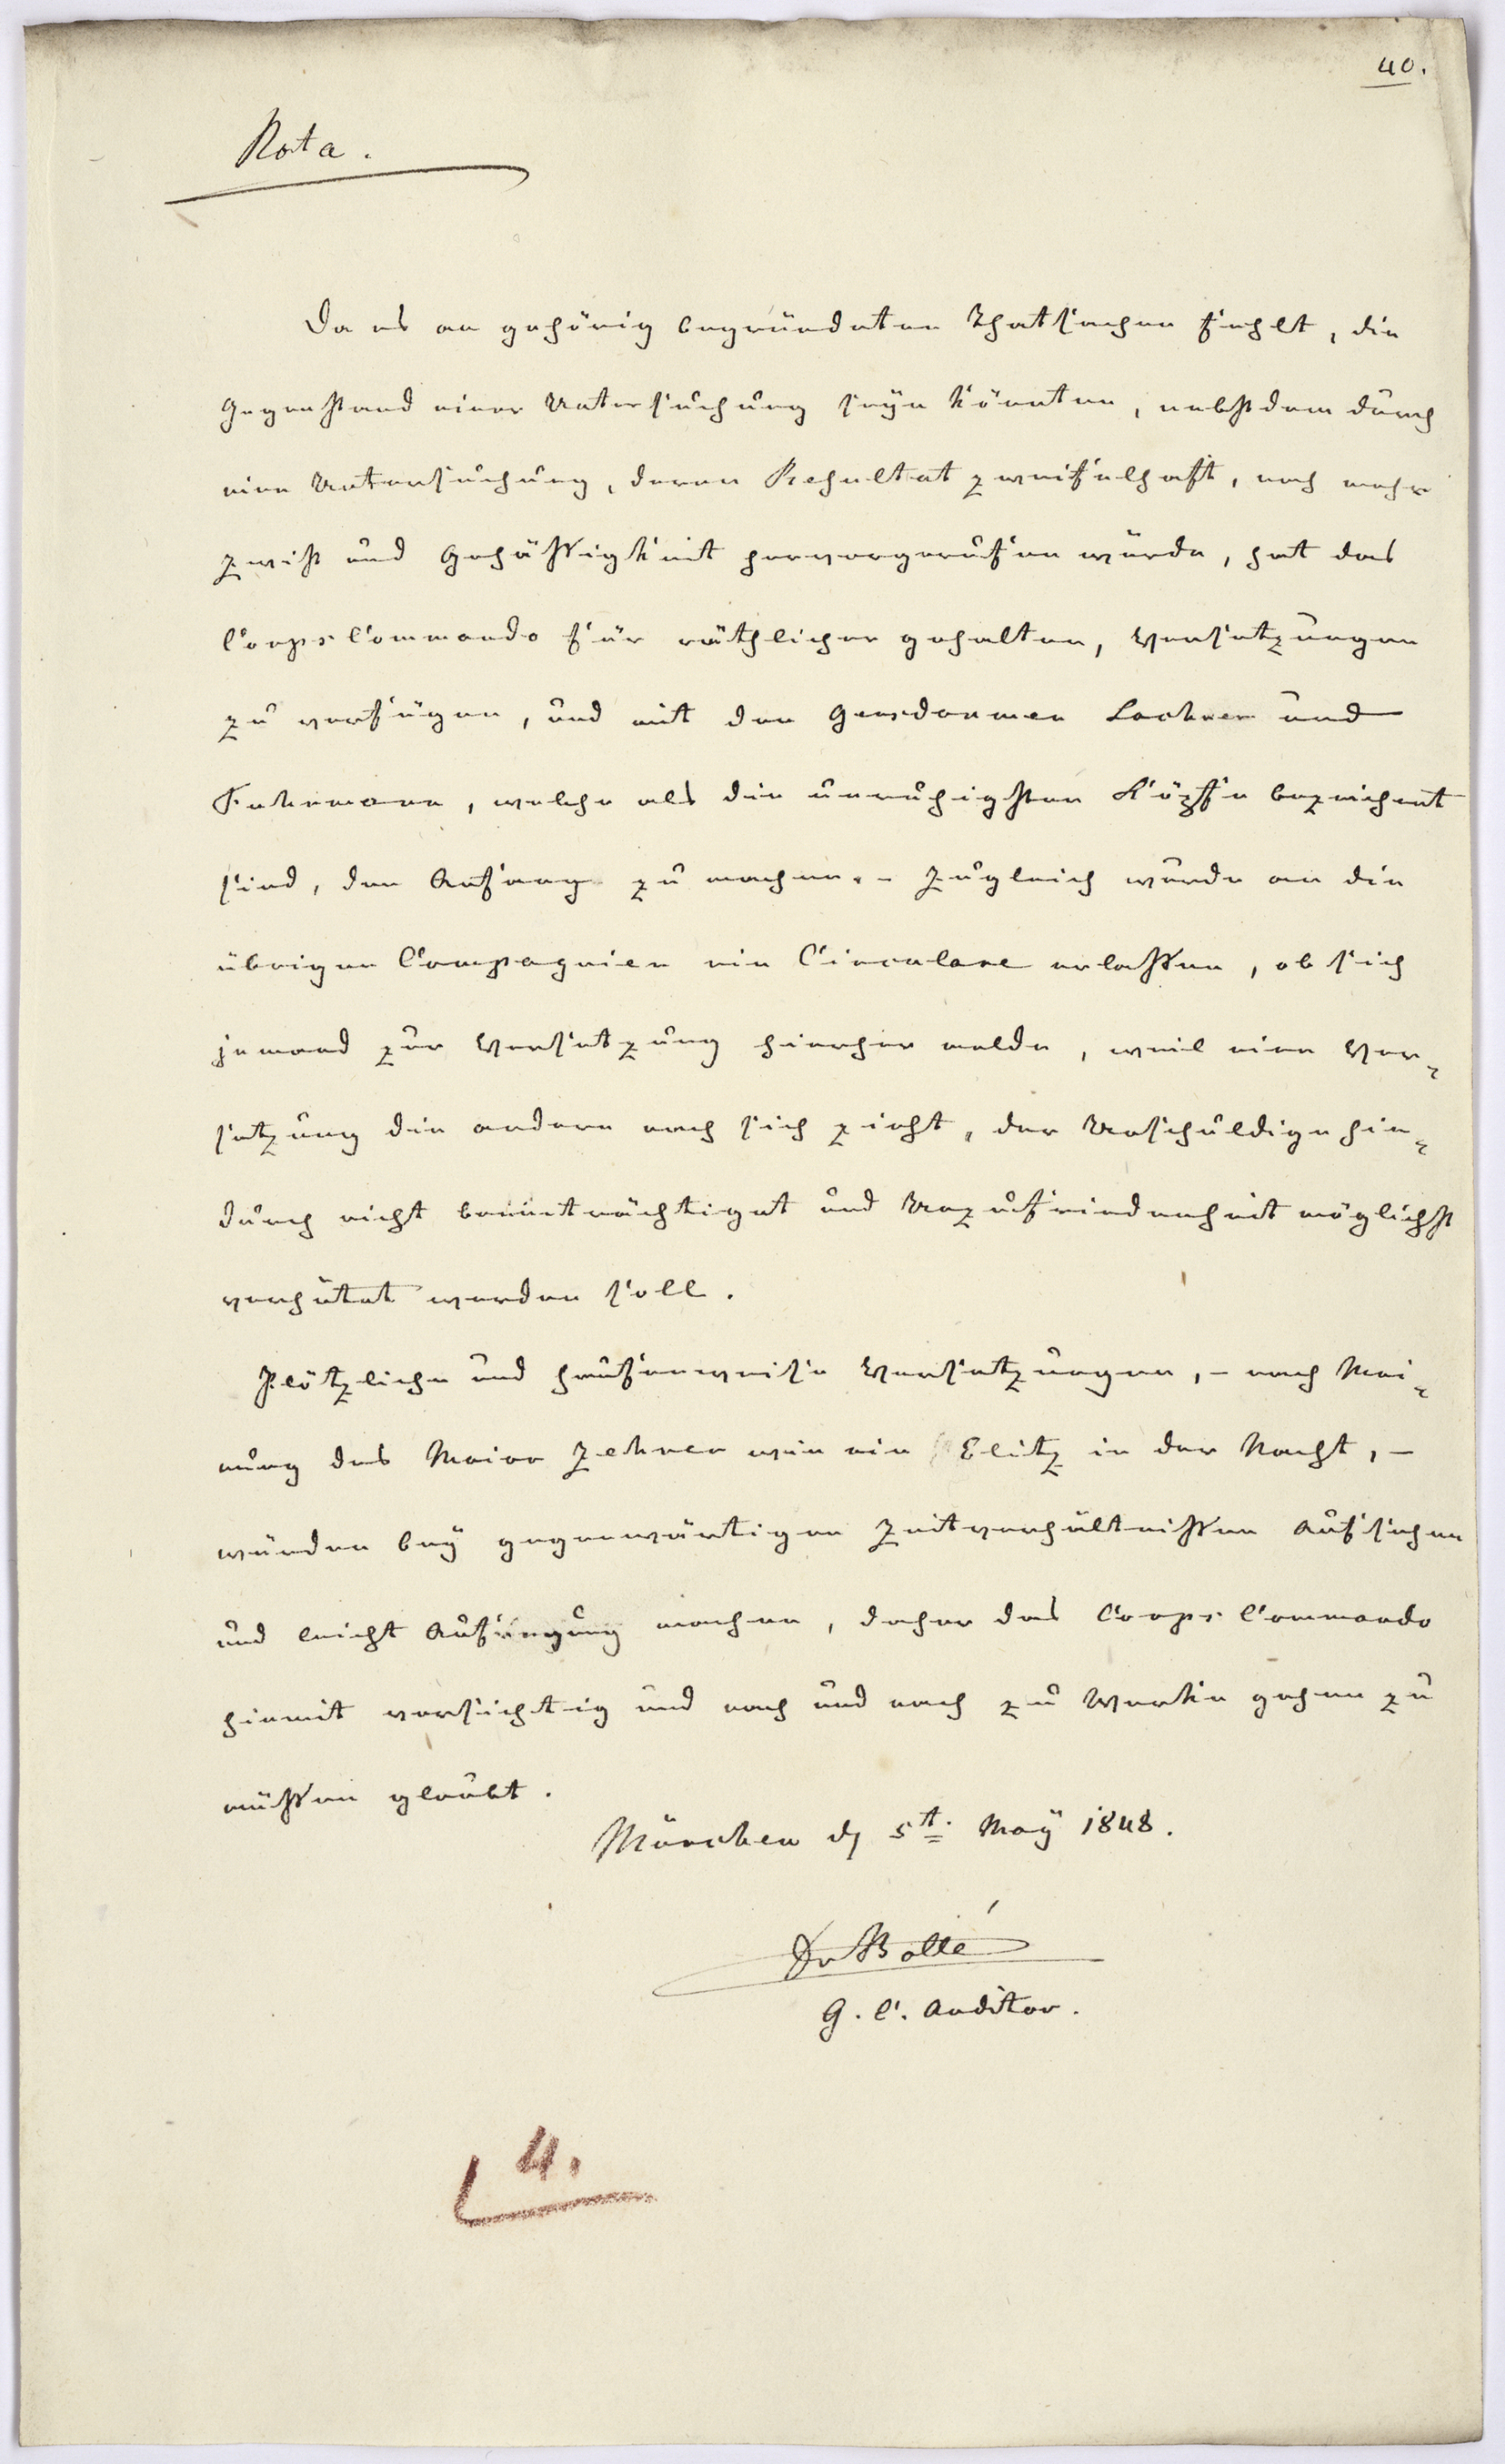 40.
Nota.
Da es an gehörig begründeten Thatsachen fehlt, die
Gegenstand einer Untersuchung seyn könnten, nebstdem durch
eine Untersuchung, deren Resultat zweifelhaft, noch mehr
Zwist und Gehässigkeit hervorgerufen würde, hat das
Corps Commando für räthlicher gehalten, Versetzungen
zu verfügen, und mit den Gensdarmen Lochner und
Fuhrmann, welche als die unruhigsten Köpfe bezeichnet
sind, den Anfang zu machen. - Zugleich wurde an die
übrigen Compagnien ein Circulare erlassen, ob sich
jemand zur Versetzung hierher melde, weil eine Ver-
setzung die andere nach sich zieht, der Unschuldige hie-
durch nicht beeinträchtiget und Unzufriedenheit möglichst
verhütet werden soll.
Plötzliche und haufenweise Versetzungen, - nach Mei-
nung des Maior Zehner wie ein Blitz in der Nacht, -
würden bey gegenwärtigen Zeitverhältnissen Aufsehen
und leicht Aufregung machen, daher das Corps Commando
hiemit vorsichtig und nach und nach zu Werke gehen zu
müssen glaubt.
München d 5t. May 1848.
Dr Bollé
G. C. Auditor.
4.